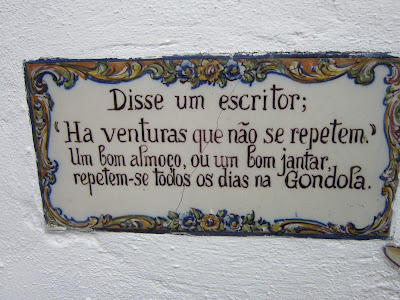 Disse um escritor;
"Ha venturas que não se repetem."
Um bom almoço, ou um bom jantar,
repetem-se todos os dias na Gondola.